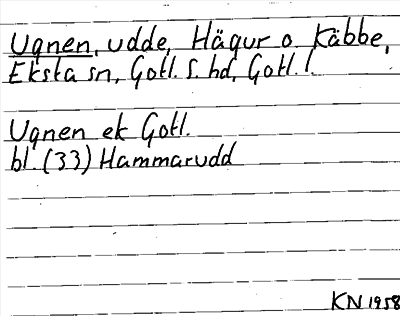 Ugnen, udde, Hägur o. Käbbe,
Eksta sn, Gotl. S. hd, Gotl. l.
Ugnen ek Gotl.
bl. (33) Hammarudd
KN 1958